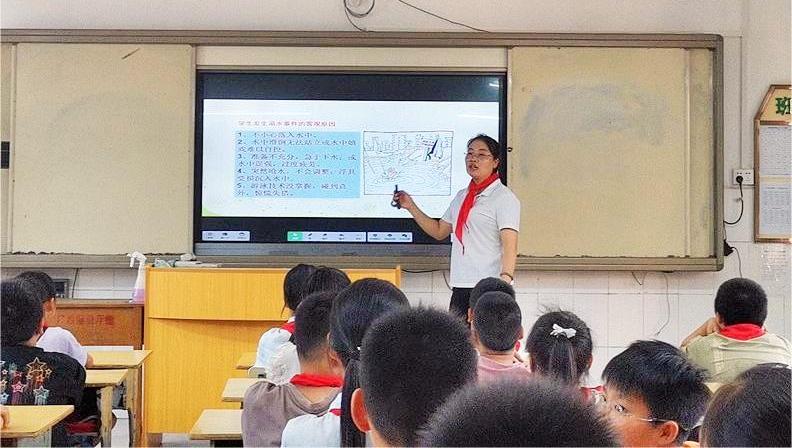 学生发生溺水事件的客观原因
1、不小心落入水中。
2、水中滑倒无法站立或水中嬉
戏难以自控。
3、准备不充分，急于下水，或
水中逞强，过度疲劳。
4、突然呛水，不会调整，浮具
受损沉入水中。
5、游泳技术没掌握，碰到意
外，惊慌失措。
班